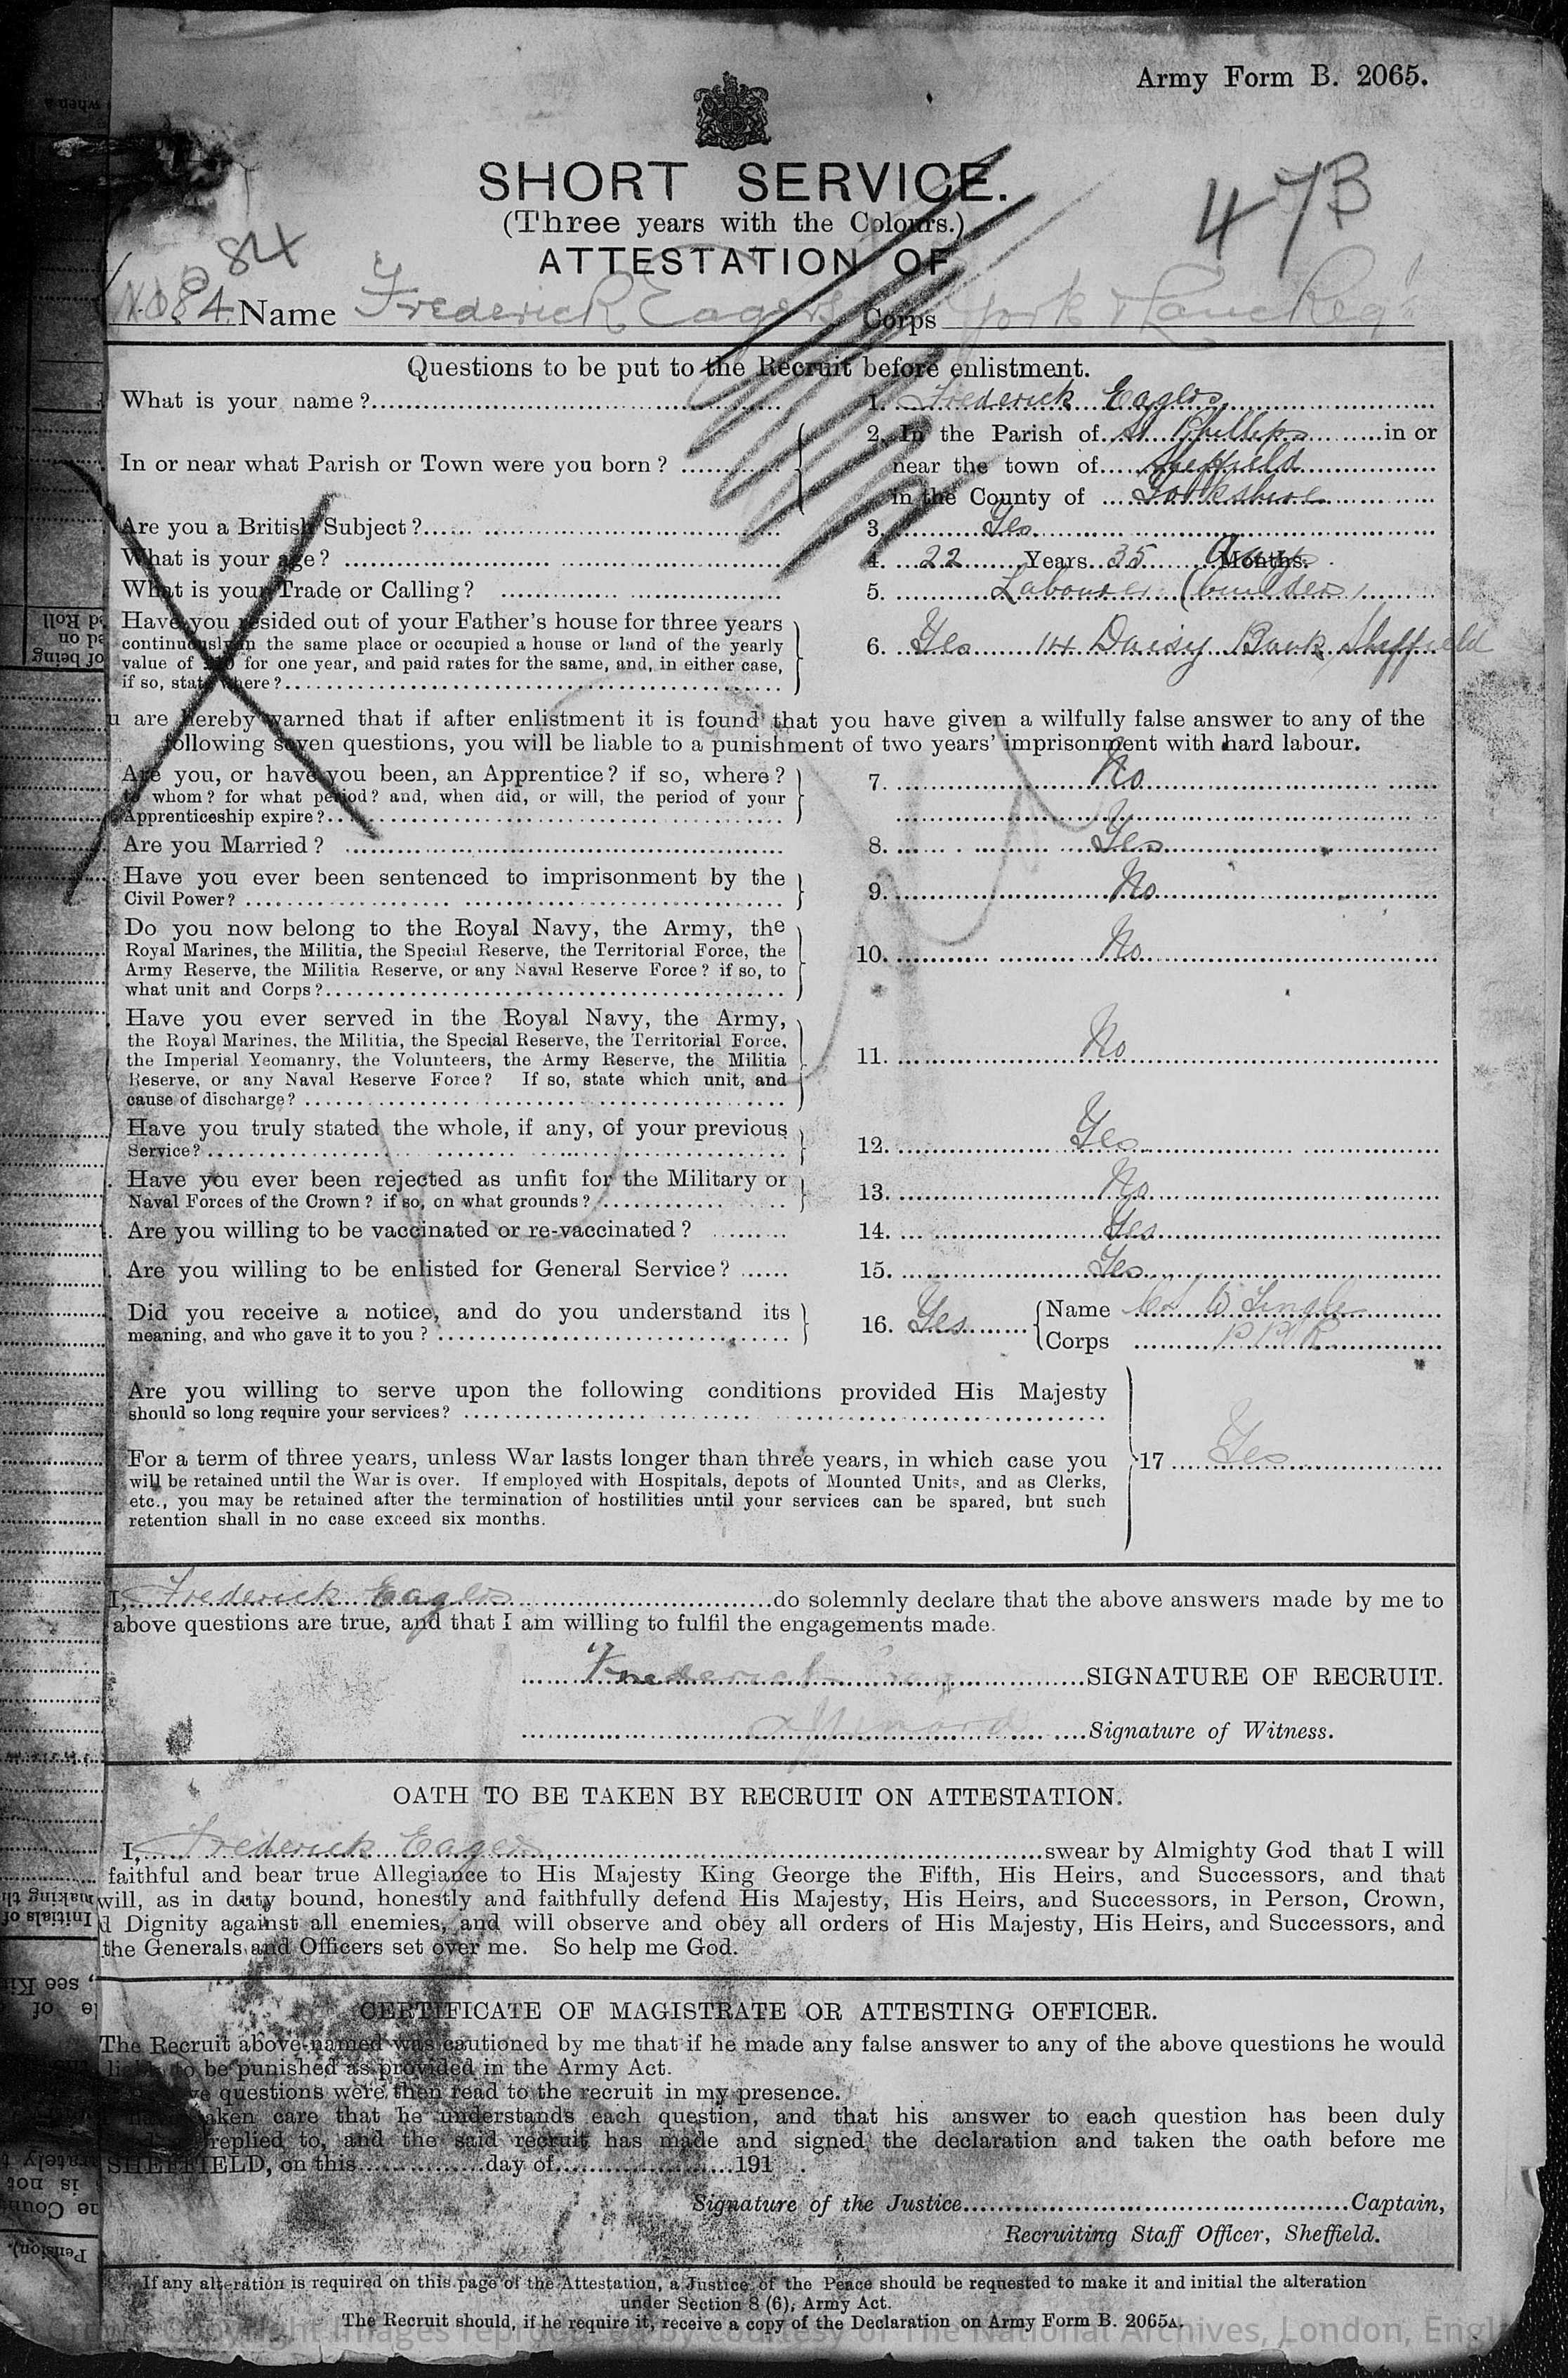 Army Form B. 2065.
SHORT SERVICE.
(Three years with the Colours.)
ATTESTATION OF
473
84
No 84 Name Frederick Eagers Corps York & Lanc Regt
Questions to be put to the Recruit before enlistment.
What is your name?
1. Frederick Eagles
In or near what Parish or Town were you born?
2. In the Parish of St Phillips in or
near the town of Sheffield
in the County of Yorkshire
Are you a British Subject?
3. Yes
What is your age?
4. 22 Years 35 Months. Days
What is your Trade or Calling?
5. Labourer (builders)
Have you resided out of your Father's house for three years
continuously in the same place or occupied a house or land of the yearly
value of for one year, and paid rates for the same, and, in either case,
if so, state where?
6. Yes 14 Daisy Bank Sheffield
u are hereby warned that if after enlistment it is found that you have given a wilfully false answer to any of the
following seven questions, you will be liable to a punishment of two years' imprisonment with hard labour.
Are you, or have you been, an Apprentice? if so, where?
to whom? for what period? and, when did, or will, the period of your
Apprenticeship expire?
7. No
Are you Married?
8. Yes
Have you ever been sentenced to imprisonment by the
Civil Power?
9. No
Do you now belong to the Royal Navy, the Army, the
Royal Marines, the Militia, the Special Reserve, the Territorial Force, the
Army Reserve, the Militia Reserve, or any Naval Reserve Force? if so, to
what unit and Corps?
10. No
Have you ever served in the Royal Navy, the Army,
the Royal Marines, the Militia, the Special Reserve, the Territorial Force,
the Imperial Yeomanry, the Volunteers, the Army Reserve, the Militia
Reserve, or any Naval Reserve Force? If so, state which unit, and
cause of discharge?
11. No
Have you truly stated the whole, if any, of your previous
Service?
12. Yes
Have you ever been rejected as unfit for the Military or
Naval Forces of the Crown? if so, on what grounds?
13. No
Are you willing to be vaccinated or re-vaccinated?
14. Yes
Are you willing to be enlisted for General Service?
15. Yes
Did you receive a notice, and do you understand its
meaning, and who gave it to you?
16. Yes
Name
Corps
Are you willing to serve upon the following conditions provided His Majesty
should so long require your services?
For a term of three years, unless War lasts longer than three years, in which case you
will be retained until the War is over. If employed with Hospitals, depots of Mounted Units, and as Clerks,
etc., you may be retained after the termination of hostilities until your services can be spared, but such
retention shall in no case exceed six months.
17 Yes
I, Frederick Eagles do solemnly declare that the above answers made by me to
above questions are true, and that I am willing to fulfil the engagements made.
Frederick SIGNATURE OF RECRUIT.
Signature of Witness.
OATH TO BE TAKEN BY RECRUIT ON ATTESTATION.
I, Frederick Eagers swear by Almighty God that I will
faithful and bear true Allegiance to His Majesty King George the Fifth, His Heirs, and Successors, and that
will, as in duty bound, honestly and faithfully defend His Majesty, His Heirs, and Successors, in Person, Crown,
d Dignity against all enemies, and will observe and obey all orders of His Majesty, His Heirs, and Successors, and
the Generals and Officers set over me. So help me God.
CERTIFICATE OF MAGISTRATE OR ATTESTING OFFICER.
The Recruit above-named was cautioned by me that if he made any false answer to any of the above questions he would
to be punished as provided in the Army Act.
questions were then read to the recruit in my presence.
taken care that he understands each question, and that his answer to each question has been duly
replied to, and the said recruit has made and signed the declaration and taken the oath before me
SHEFFIELD, on this day of 191 .
Signature of the Justice Captain,
Recruiting Staff Officer, Sheffield.
If any alteration is required on this page of the Attestation, a Justice of the Peace should be requested to make it and initial the alteration
under Section 8 (6), Army Act.
The Recruit should, if he require it, receive a copy of the Declaration on Army Form B. 2065A.
Copyright Images reproduced by courtesy of The National Archives, London, Engl